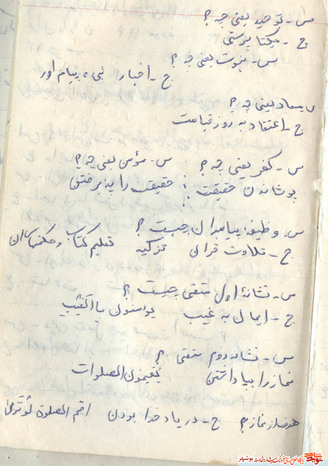 س - توحید یعنی چه ؟
ج - یکتا پرستی
س - نبوت یعنی چه ؟
ج - اخبار نبی، پیام اور
س معاد یعنی چه ؟
ج - اعتقاد به روز قیامت
س - کفر یعنی چه ؟ س - مؤمن یعنی چه ؟
پوشاندن حقیقت : حقیقت را پذیرفتن
س وظیفه پیامبران چیست ؟
ج - تلاوت قرآن تزکیه تعلیم کتاب و حکمت
س - نشانه اول متقی چیست ؟
ج - ایمان به غیب یومنون بالغیب
س - نشانه دوم متقی ؟
نماز را بپا داشتن یقیمون الصلوات
هدف از نماز ؟ ج - در یاد خدا بودن اقم الصلوة لذکری